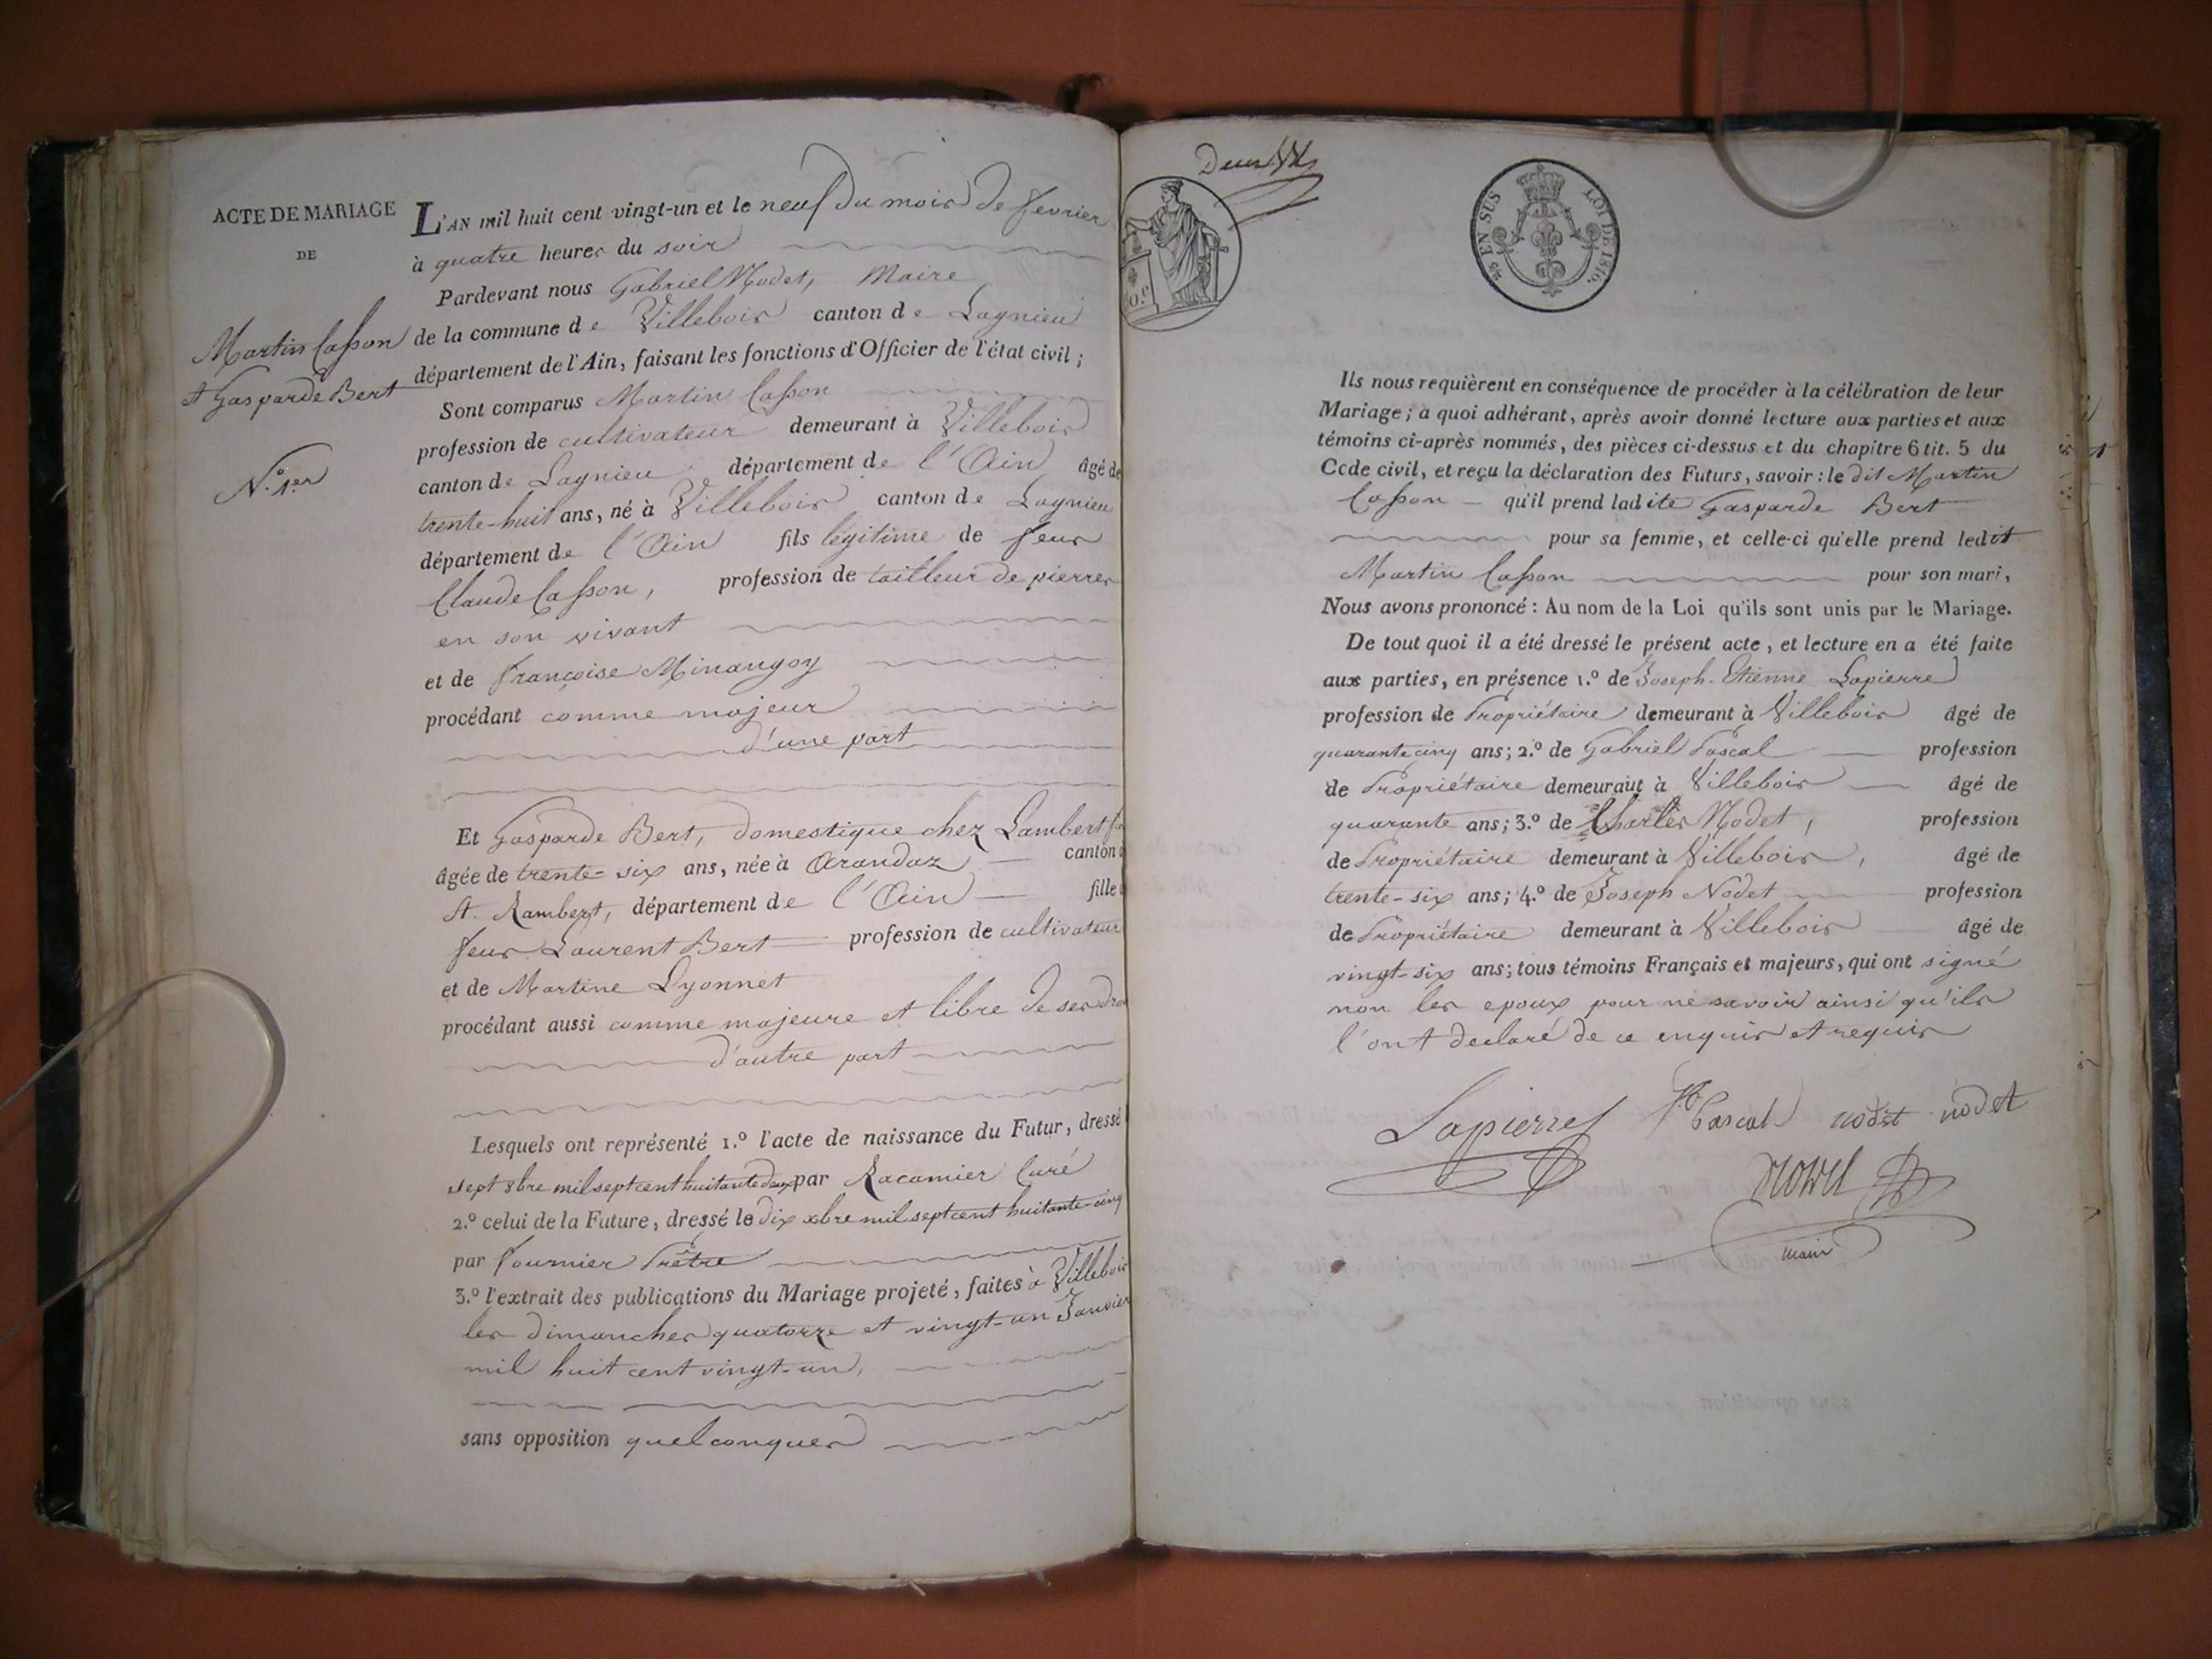 ACTE DE MARIAGE
DE
Martin Casson
et Gasparde Bert
N.º 1.er
L'AN mil huit cent vingt-un et le neuf du mois de fevrier
à quatre heures du soir
Pardevant nous Gabriel Nodet, Maire
de la commune de Villebois canton de Lagnieu
département de l'Ain, faisant les fonctions d'Officier de l'état civil ;
Sont comparus Martin Casson
profession de cultivateur demeurant à Villebois
canton de Lagnieu département de l'Ain âgé de
trente-huit ans, né à Villebois canton de Lagnieu
département de l'Ain fils légitime de feus
Claude Casson, profession de tailleur de pierres
en son vivant
et de françoise Minangoy
procédant comme majeur
d'une part
Et Gasparde Bert, domestique chez Lambert
âgée de trente-six ans, née à Arandaz canton
St. Rambert, département de l'Ain fille
feus Laurent Bert profession de cultivateur
et de Martine Lyonnet
procédant aussi comme majeure et libre de ses
d'autre part
Lesquels ont représenté 1.º l'acte de naissance du Futur, dressé
sept 8bre mil sept cent huitante deux par Racamier Curé
2.º celui de la Future, dressé le dix xbre mil sept cent huitante-cinq
par fournier Prêtre
3.º l'extrait des publications du Mariage projeté, faites à Villebois
les dimanches quatorze et vingt-un Janvier
mil huit cent vingt-un,
sans opposition quelconques
Deux
EN SUS LOI DE 1816.
Ils nous requièrent en conséquence de procéder à la célébration de leur
Mariage ; à quoi adhérant, après avoir donné lecture aux parties et aux
témoins ci-après nommés, des pièces ci-dessus et du chapitre 6 tit. 5 du
Code civil, et reçu la déclaration des Futurs, savoir : le dit Martin
Casson qu'il prend ladite Gasparde Bert
pour sa femme, et celle-ci qu'elle prend ledit
Martin Casson pour son mari,
Nous avons prononcé : Au nom de la Loi qu'ils sont unis par le Mariage.
De tout quoi il a été dressé le présent acte, et lecture en a été faite
aux parties, en présence 1.º de Joseph-Etienne Lapierre
profession de Propriétaire demeurant à Villebois âgé de
quarante cinq ans ; 2.º de Gabriel Pascal profession
de Propriétaire demeurant à Villebois âgé de
quarante ans ; 3.º de Charles Nodet, profession
de Propriétaire demeurant à Villebois, âgé de
trente-six ans ; 4.º de Joseph Nodet profession
de Propriétaire demeurant à Villebois âgé de
vingt-six ans ; tous témoins Français et majeurs, qui ont signé
non les epoux pour ne savoir ainsi qu'ils
l'ont declaré de ce enquis et requis
Lapierre Pascal nodet nodet
Nodet
maire